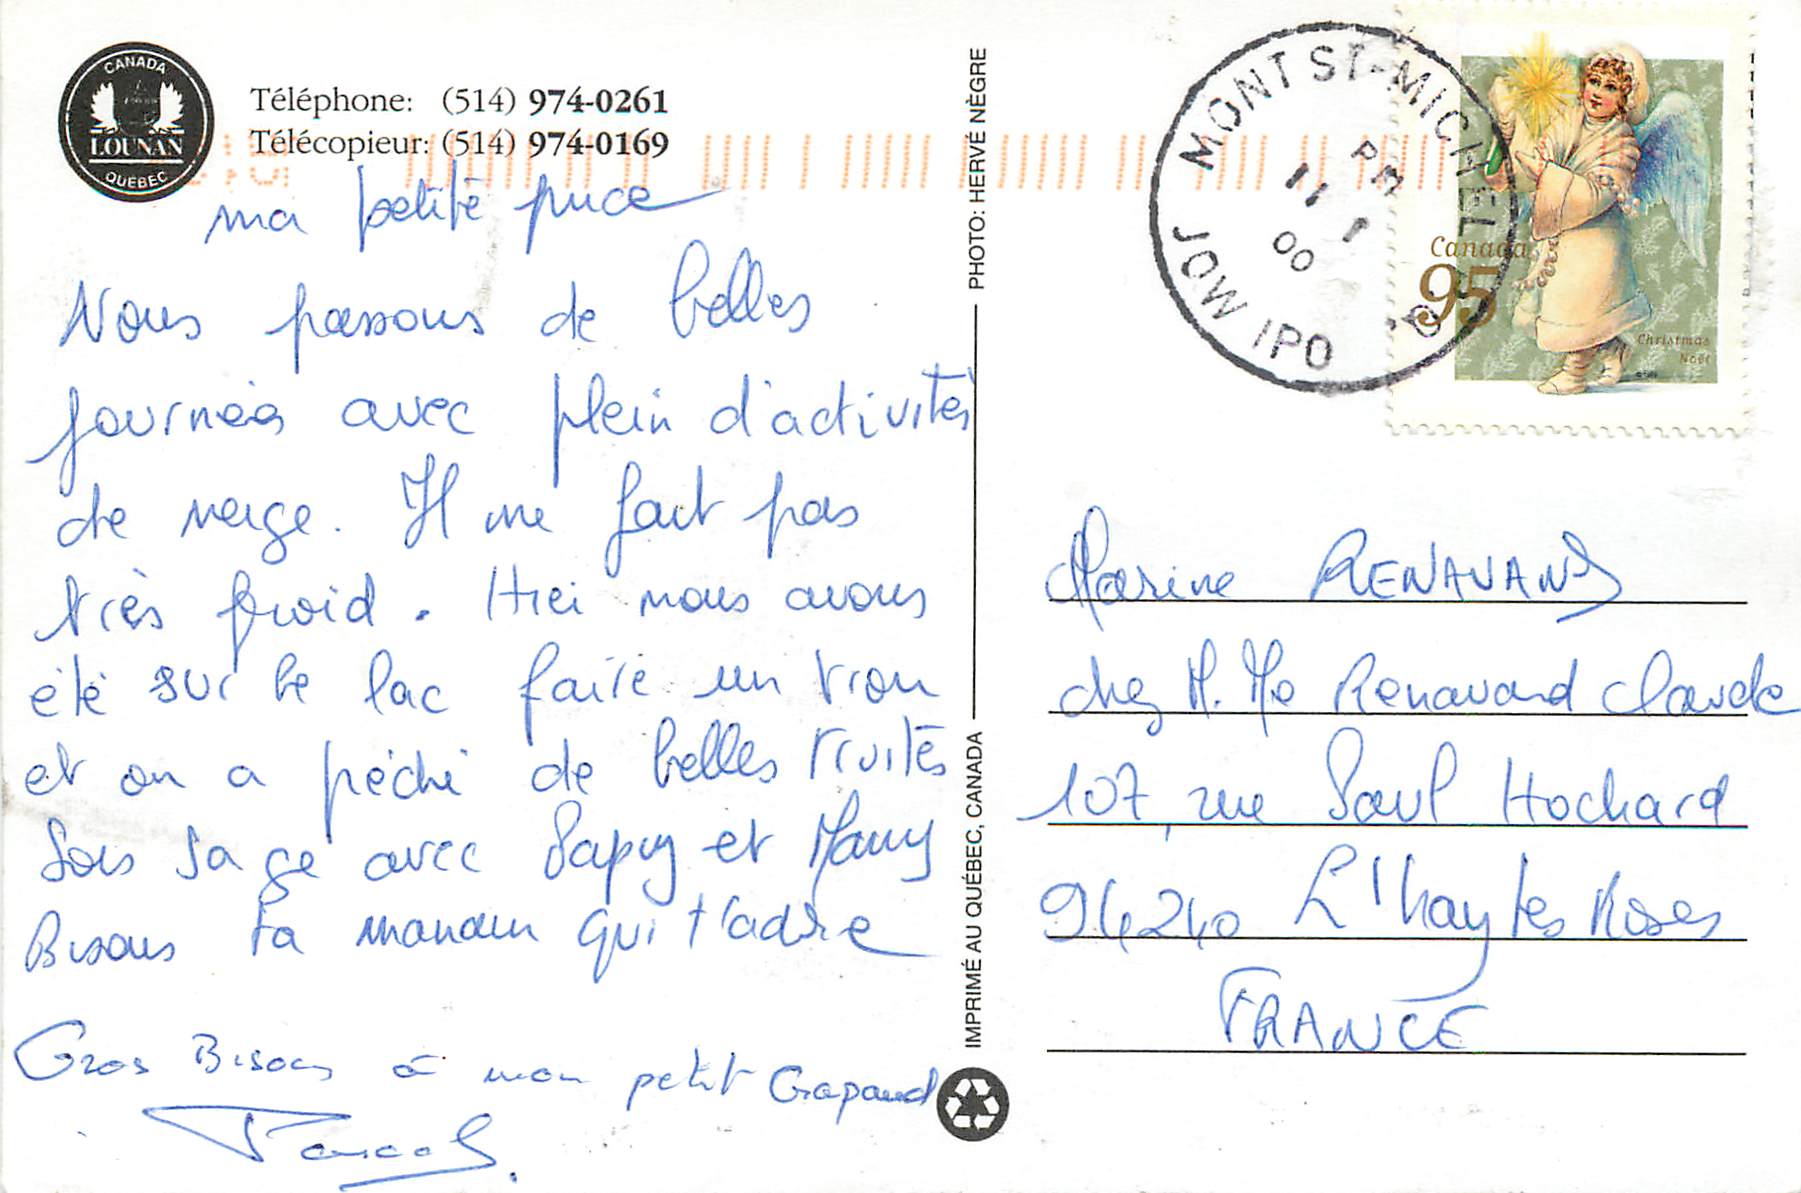 CANADA
LOUNAN
QUÉBEC
Téléphone: (514) 974-0261
Télécopieur: (514) 974-0169
ma petite puce
Nous passons de belles
journées avec plein d'activités
de neige. Il ne fait pas
très froid. Hier nous avons
été sur le lac faire un trou
et on a péché de belles truites
Sois sage avec Papy et Mamy
Bisous ta maman qui t'adore
Gros Bisous à mon petit Crapaud
Pascal.
PHOTO: HERVÉ NÈGRE
IMPRIMÉ AU QUÉBEC, CANADA
MONT ST-MICHEL
PM
11 I
00
JOW IPO
Canada
95
Christmas
Noël
Marine RENAVAND
chez M. Me Renavand Claude
107, rue Paul Hochard
94240 L'hay les Roses
FRANCE